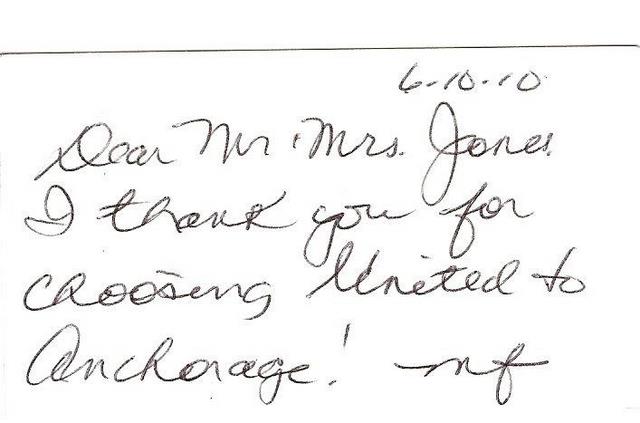 6-10-10
Dear Mr. Mrs. Jones.
I thank you for
choosing United to
Anchorage!